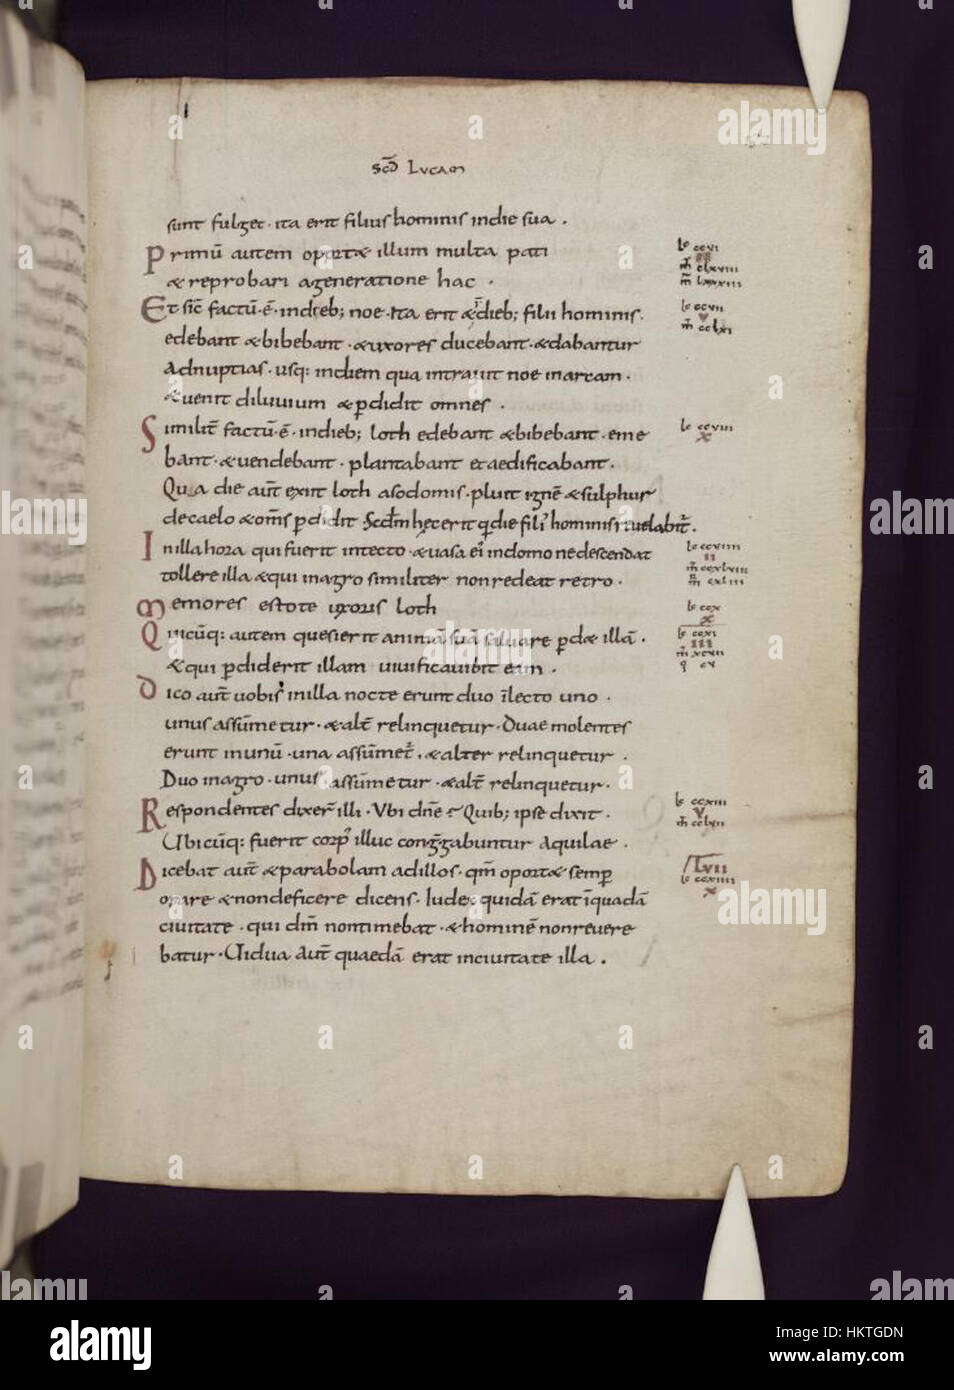 Scd̄ LUCAM
sunt fulget · ita erit filius hominis indie sua .
Primū autem oportæ illum multa pati
& reprobari ageneratione hac .
Et sic̄ factū · ē · indieb; noe · Ita erit & dieb; filii hominis .
edebant & bibebant · & uxores ducebant · & dabantur
adnuptias · usq: indiem qua intrauit noe inarcam ·
& uenit diluuium & p̄didit omnes .
Similit̄ factū · ē · indieb; loth edebant & bibebant · eme
bant · & uendebant · plantabant et aedificabant .
Qua die aut̄ exiit loth asodomis · pluit ignē & sulphur
decaelo & om̄s p̄didit Scdm̄ hęc erit q die filiꝰ hominis reuelabit᷑ .
Inilla hora qui fuerit intecto · & uasa eiꝰ indomo nedescendat
tollere illa & qui inagro similiter nonredeat retro .
Memores estote uxoris loth
Quicūq: autem quesierit animā suā saluare p̄d& illā .
& qui p̄diderit illam uiuificauibit eam .
Dico aut̄ uobis inilla nocte erunt duo īlecto uno .
unus assūmetur · & alt̄ relinquetur · Duae molentes
erunt inunū · una assūmet᷑ · & alter relinquetur .
Duo inagro · unus assūmetur · & alt̄ relinquetur .
Respondentes dixer̄ illi · Ubi dn̄e ? Quib; ipse dixit .
Ubicūq: fuerit corpꝰ illuc congḡabuntur aquilae .
Dicebat aut̄ & parabolam adillos · qm̄ oport& semp̄
orare & nondeficere dicens · Iudex quidā erat īquadā
ciuitate · qui dm̄ nontimebat · & hominē nonreuere
batur · Uidua aut̄ quaedā erat inciuitate illa .
lc ccvi
m̄ clxviii
m̄ lxxxiii
lc ccvii
v
m̄ cclxi
lc ccviii
x
lc ccviiii
ii
lc ccx
x
lc ccxi
iii
m̄ xcvii
lc ccxiii
v
lvii
lc ccxiiii
x
alamy
Image ID: HKTGDN
www.alamy.com